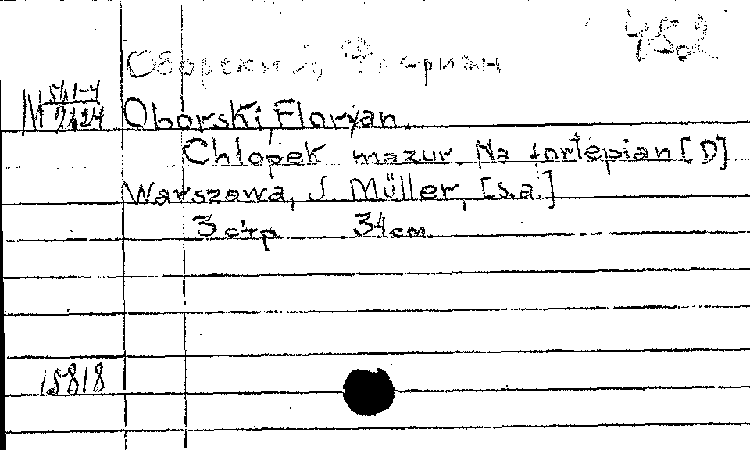 452
Оборский, Флориан
М 561-4
7424
Oborski, Floryan.
Chłopek mazur. Na fortepian [D]
Warszawa, J. Müller, [s.a.]
3 стр 34 см.
15818